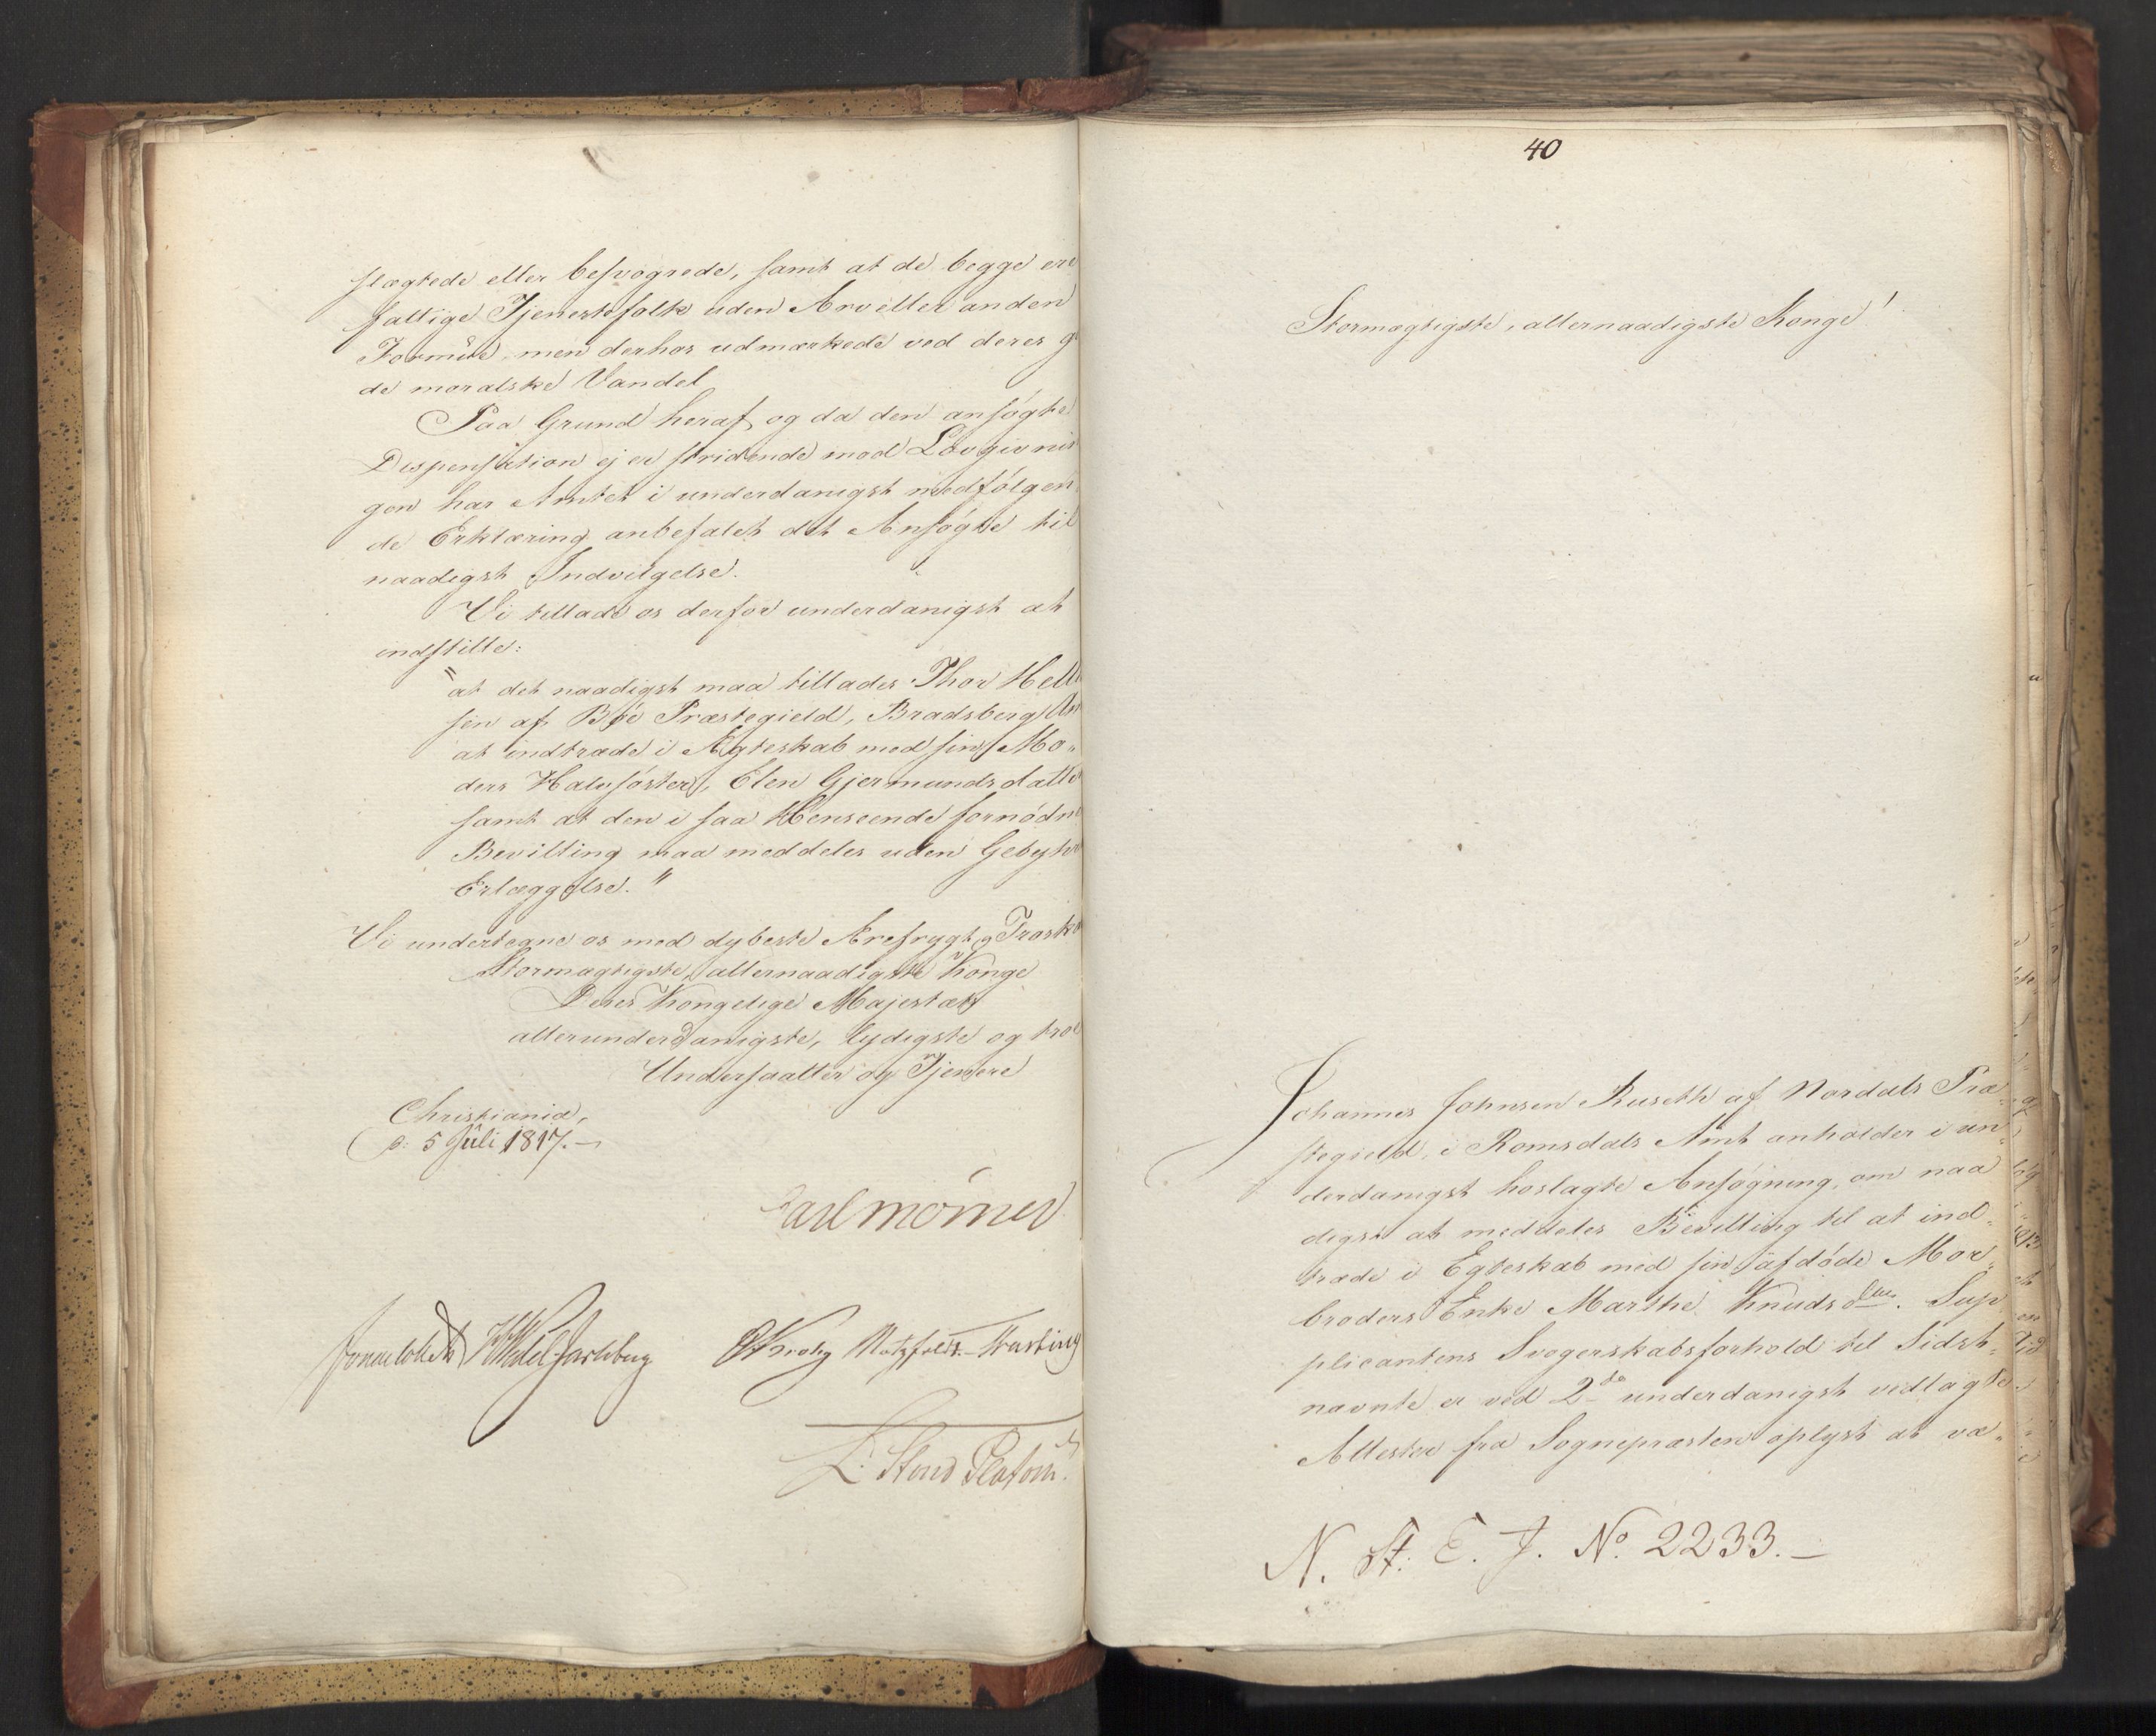 slægtede eller besvogrede, samt at de begge ere
fattige Tjenestefolk uden Arv eller anden
Formue, men derhos udmærkede ved deres g
de moralske Vandel
Paa Grund heraf, og da den ansøgte
Dispensation ej er stridende mod Lovgivnin
gen har Amtet i underdanigst medfølgen
de Erklæring anbefalet det Ansøgte til
naadigst Indvilgelse.
Vi tillade os derfor underdanigst at
indstille:
"at det naadigst maa tillades Thor Hell
sen af Bøe Præstegield, Bradsberg Am
at indtræde i Ægteskab med sin Mo-
ders Halvsøster, Elen Gjermundsdatte
samt at den i saa Henseende fornødn
Bevilling maa meddeles uden Gebyhr
Erlæggelse."
Vi undertegne os med dybeste Ærefrygt og Troska
Stormægtigste, allernaadigste Konge
Deres Kongelige Majestæts
allerunderdanigste, lydigste og troe
Undersaatter og Tjenere
Christiania,
d: 5 Juli 1817.
Carl Mörner
Sommerhielm HWedel Jarlsberg CKrohg Motzfeldt. Fasting
L. Stoud Platou.
40
Stormægtigste, allernaadigste Konge!
Johannes Johnsen Ruseth af Nordals Præ-
stegield, i Romsdals Amt anholder i un-
derdanigst hoslagte Ansøgning, om naa
digst at meddeles Bevilling til at ind-
træde i Egteskab med sin afdøde Mor-
broders Enke Marthe Knudsdtter. Sup
plicantens Svogerskabsforhold til Sidst-
nævnte er ved 2de underdanigst vedlagte
Attester fra Sognepræsten oplyst at væ-
N. St. E. J. No. 2233.